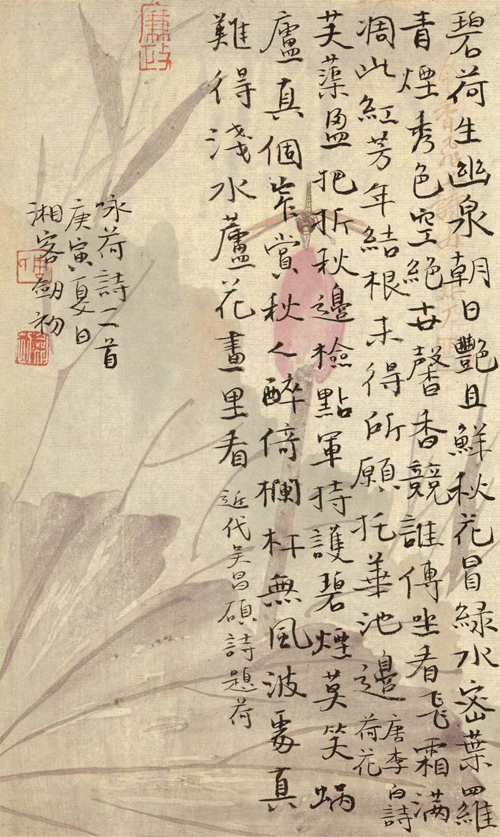 碧荷生幽泉朝日艷且鮮秋花冒綠水密葉羅
青煙秀色空絕世馨香競誰傳坐看飛霜滿
凋此紅芳年結根未得所願托華池邊
唐李白詩
荷花
芙蕖盈把折秋邊檢點軍持護碧煙莫笑蝸
廬真個窄賞秋人醉倚欄杆無風波處真
難得淺水蘆花畫里看近代吴昌碩詩題荷
咏荷詩二首
庚寅夏日
湘客劍初
廉政